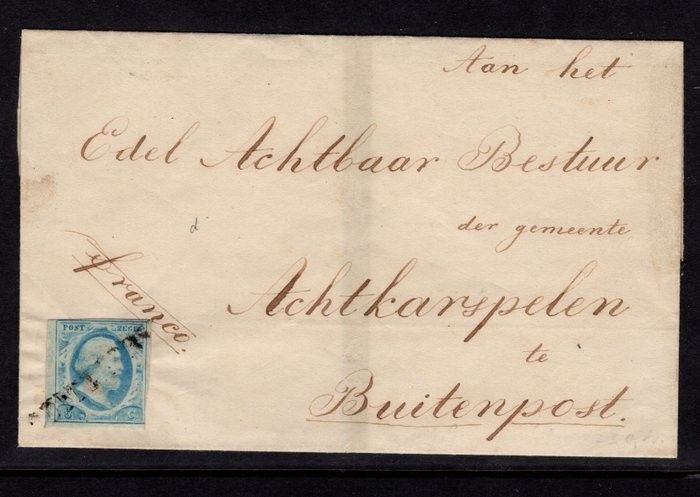 Aan het
Edel Achtbaar Bestuur
der gemeente
d
franco.
Achtkarspelen
te
Buitenpost.
POST ZEGEL
5 5